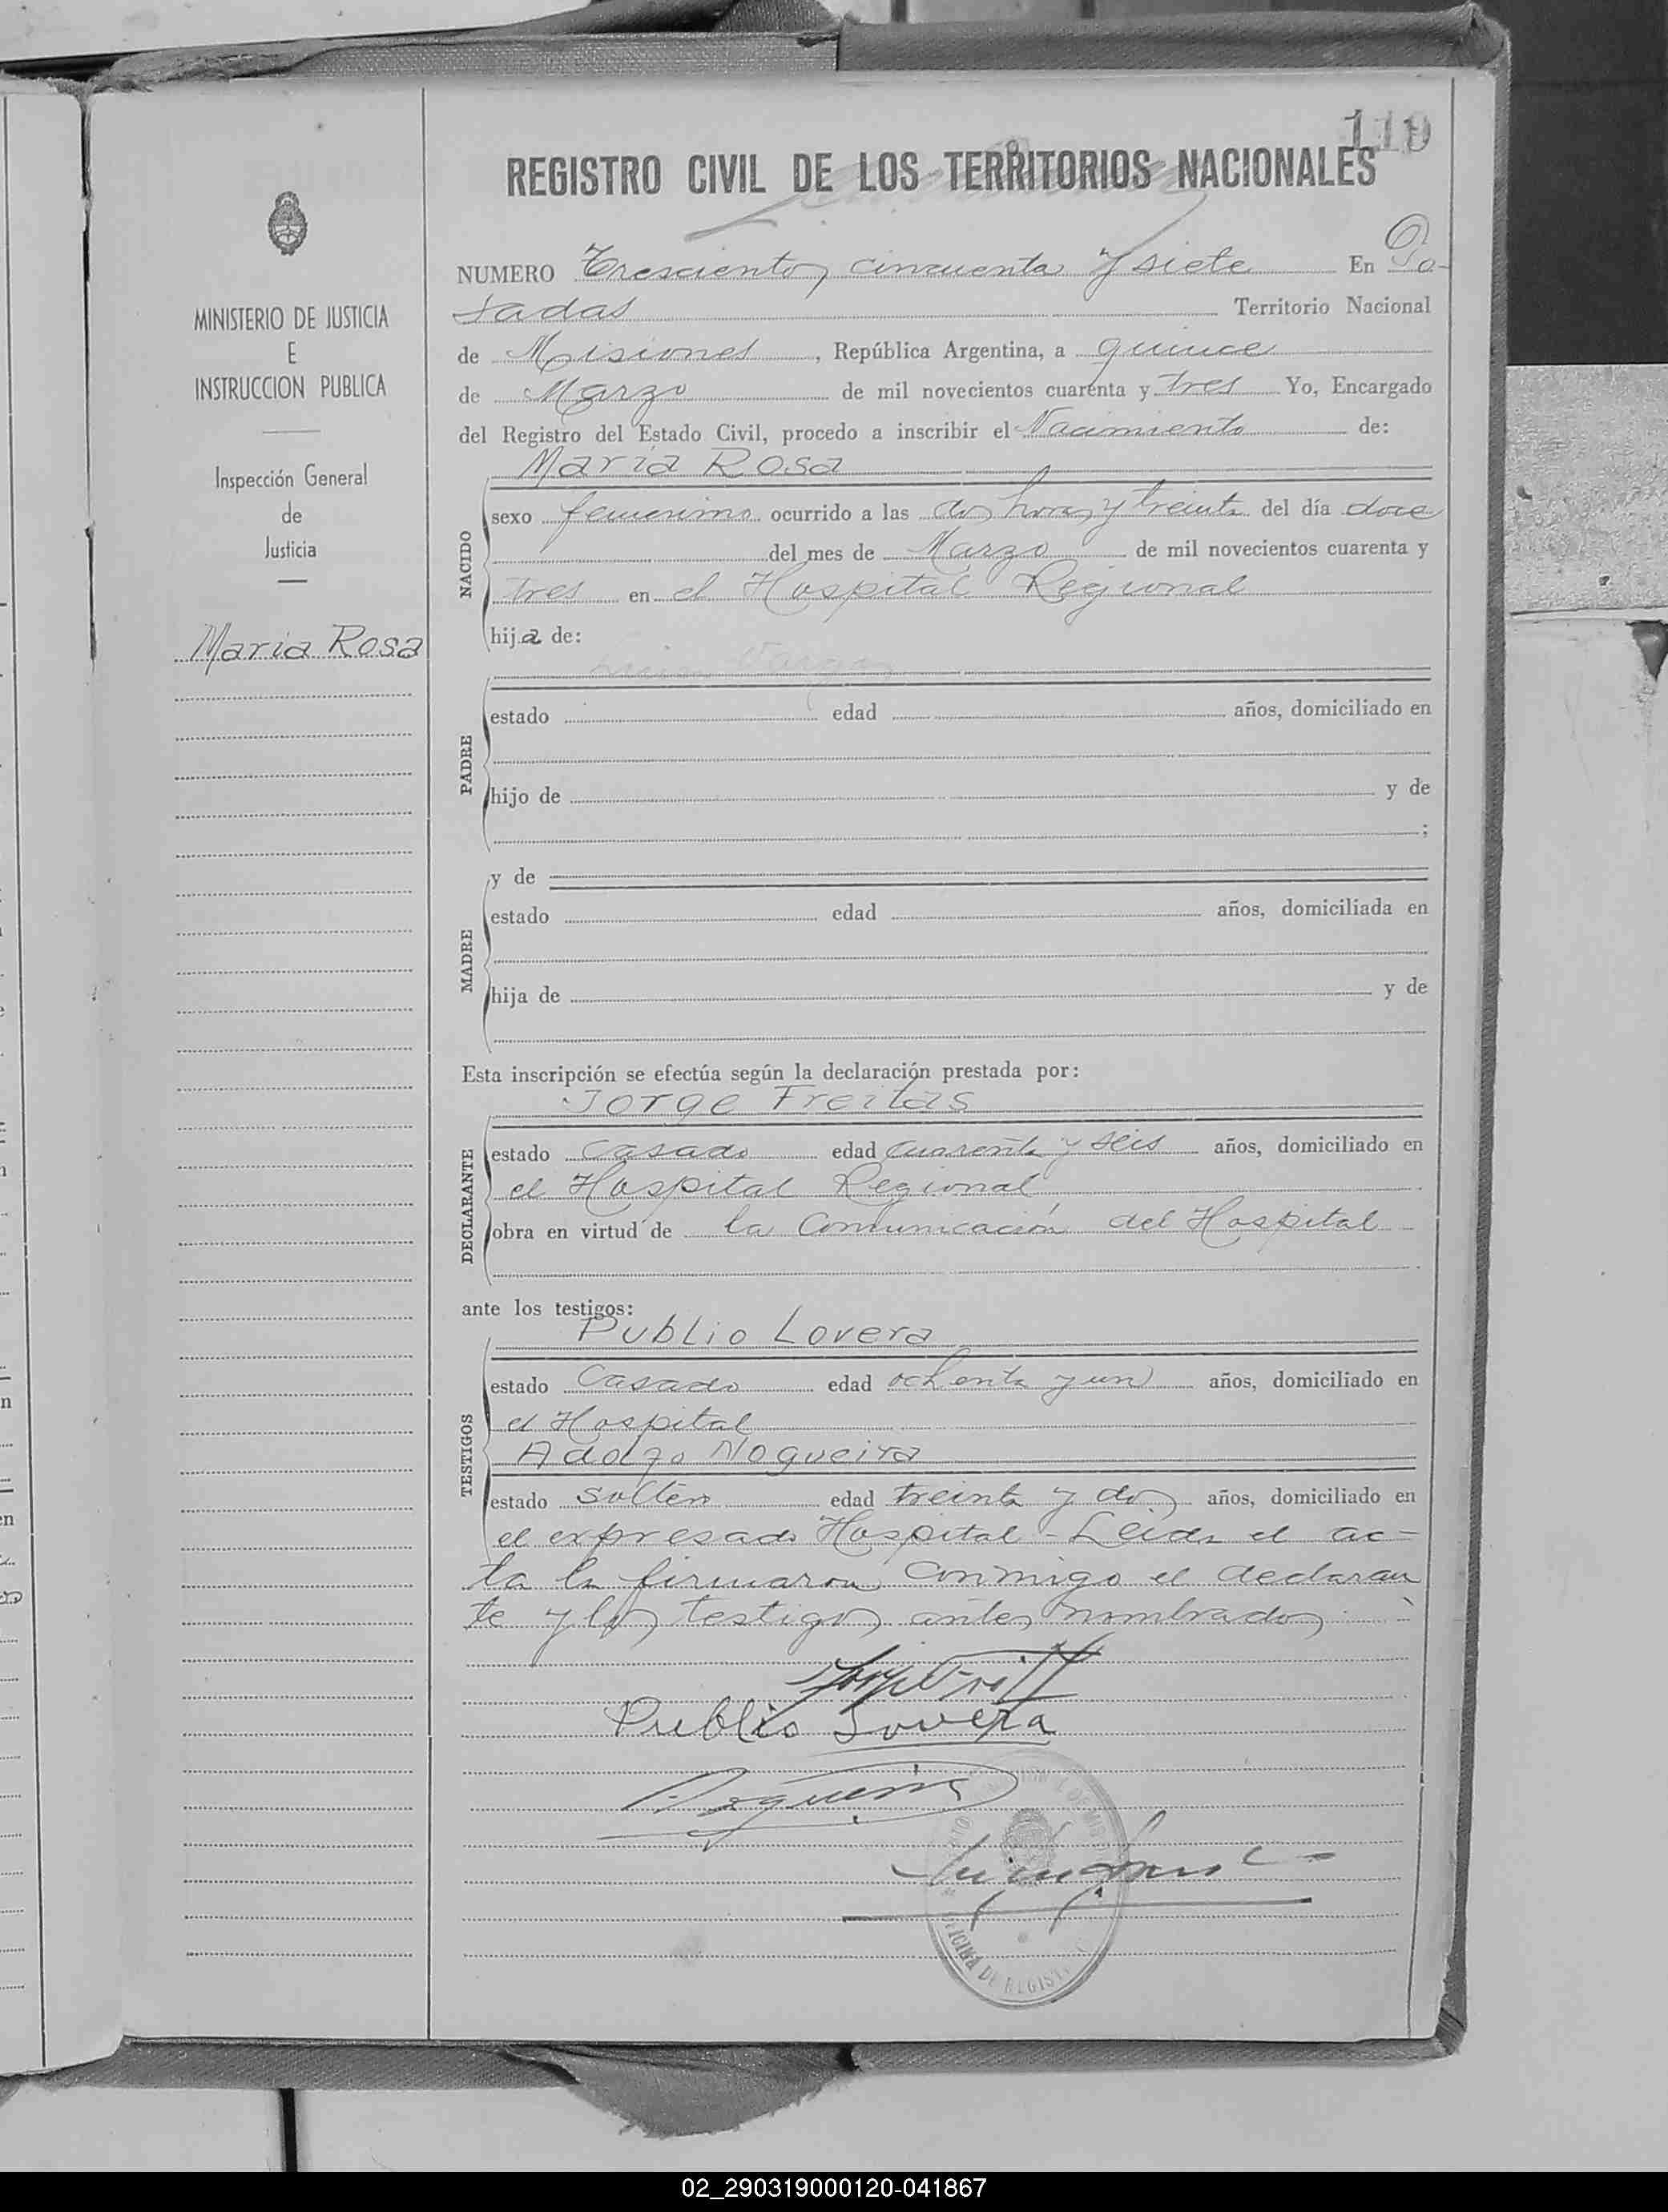 119
REGISTRO CIVIL DE LOS TERRITORIOS NACIONALES
NUMERO Trescientos cincuenta y siete En Po-
sadas Territorio Nacional
de Misiones, República Argentina, a quince
de Marzo de mil novecientos cuarenta y tres Yo, Encargado
del Registro del Estado Civil, procedo a inscribir el Nacimiento de:
MINISTERIO DE JUSTICIA
E
INSTRUCCION PUBLICA
Inspección General
de
Justicia
Maria Rosa
NACIDO
Maria Rosa
sexo femenino ocurrido a las dos horas y treinta del día doce
del mes de Marzo de mil novecientos cuarenta y
tres en el Hospital Regional
hija de:
PADRE
Vargas
estado edad años, domiciliado en
hijo de y de
;
MADRE
y de
estado edad años, domiciliada en
hija de y de
Esta inscripción se efectúa según la declaración prestada por:
DECLARANTE
Jorge Freitas
estado casado edad cuarenta y seis años, domiciliado en
el Hospital Regional
obra en virtud de la Comunicación del Hospital
ante los testigos:
TESTIGOS
Publio Lovera
estado Casado edad ochenta y un años, domiciliado en
el Hospital
Adolfo Nogueira
estado soltero edad treinta y dos años, domiciliado en
el expresado Hospital - Leida el ac-
ta la firmaron conmigo el declaran
te y los testigos antes nombrados
Publio Lovera
Nogueira
OFICINA DE REGIST
02_290319000120-041867